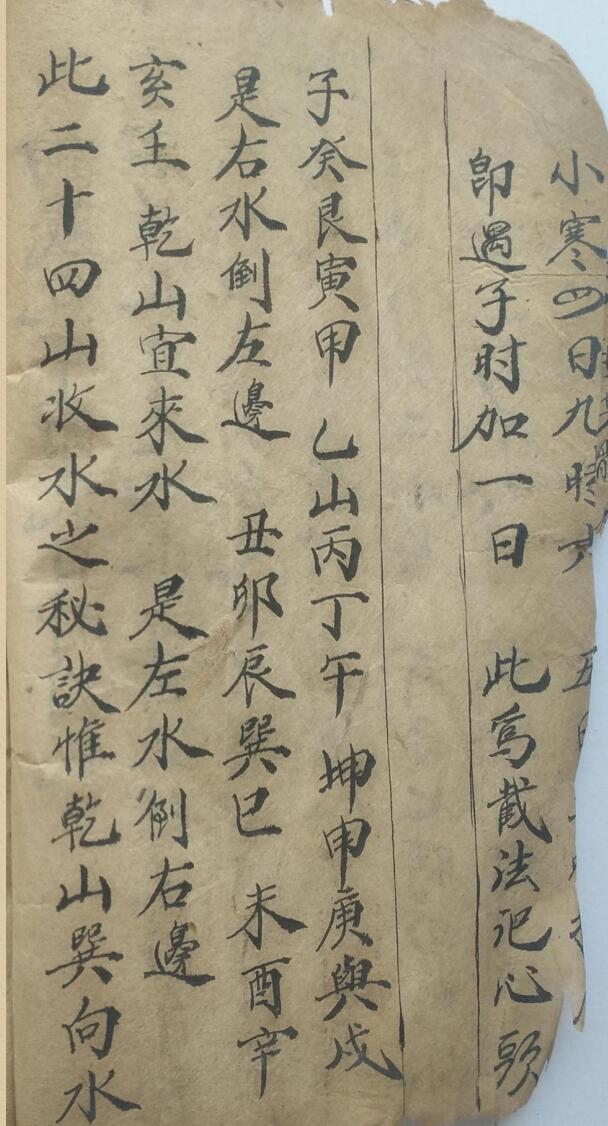 小寒四日九時 五
即遇子时加一日 此為截法記心頭
子癸艮寅甲 乙山丙丁午 坤申庚與戌
是右水倒左邊 丑卯辰巽巳 未酉辛
亥壬乾山宜來水 是左水倒右邊
此二十四山收水之秘訣惟乾山巽向水